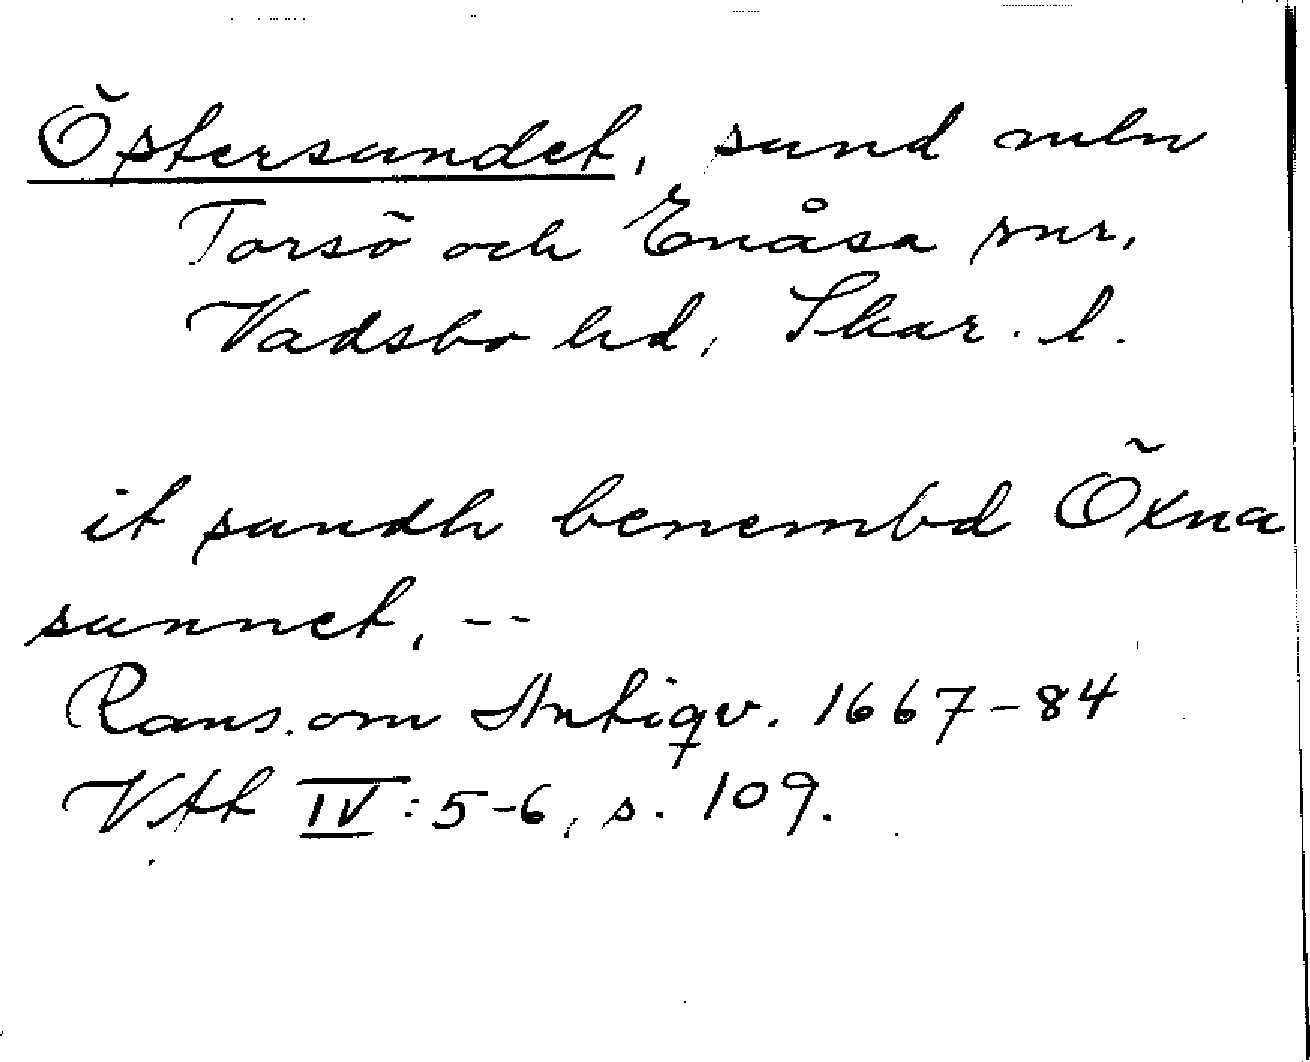 Östersundet, sund mln
Torsö och Enåsa snr,
Vadsbo hd, Skar. l.
it sundh benembd Öxna
sunnet, --
Rans. om Antiqv. 1667-84
Vtt IV: 5-6, s. 109.